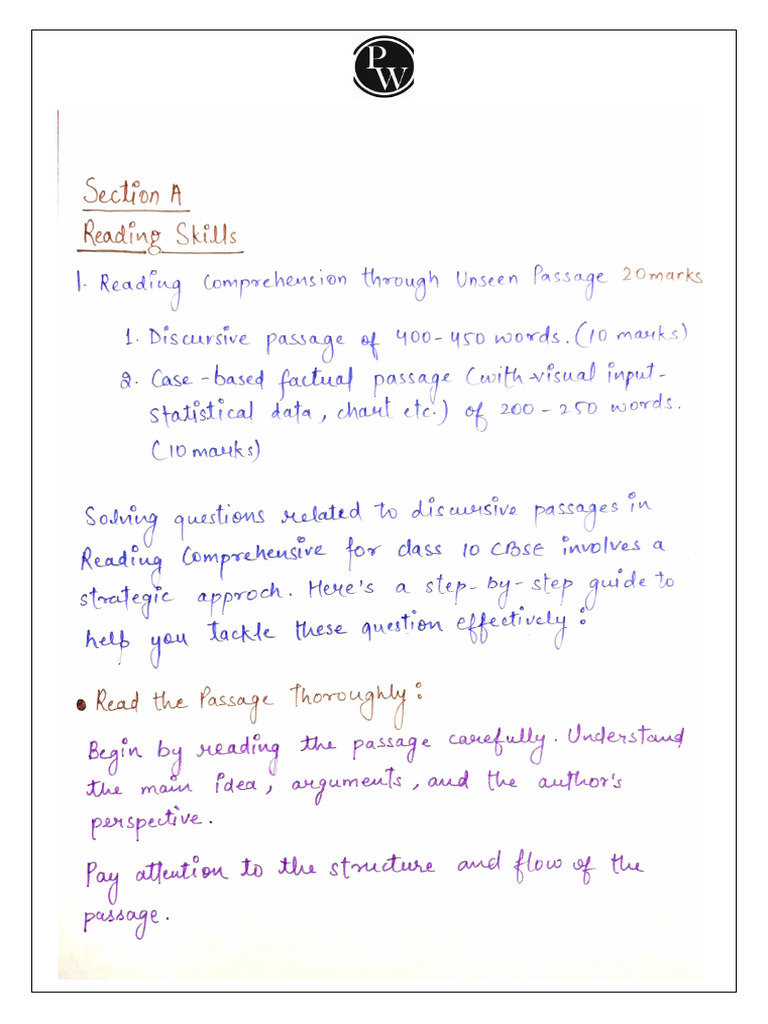 PW
Section A
Reading Skills
1. Reading Comprehension through Unseen Passage 20marks
1. Discursive passage of 400-450 words. (10 marks)
2. Case-based factual passage (with visual input-
statistical data, chart etc.) of 200-250 words.
(10 marks)
Solving questions related to discursive passages in
Reading Comprehensive for class 10 CBSE involves a
strategic approch. Here's a step-by-step guide to
help you tackle these question effectively:
• Read the Passage Thoroughly:
Begin by reading the passage carefully. Understand
the main idea, arguments, and the author's
perspective.
Pay attention to the structure and flow of the
passage.